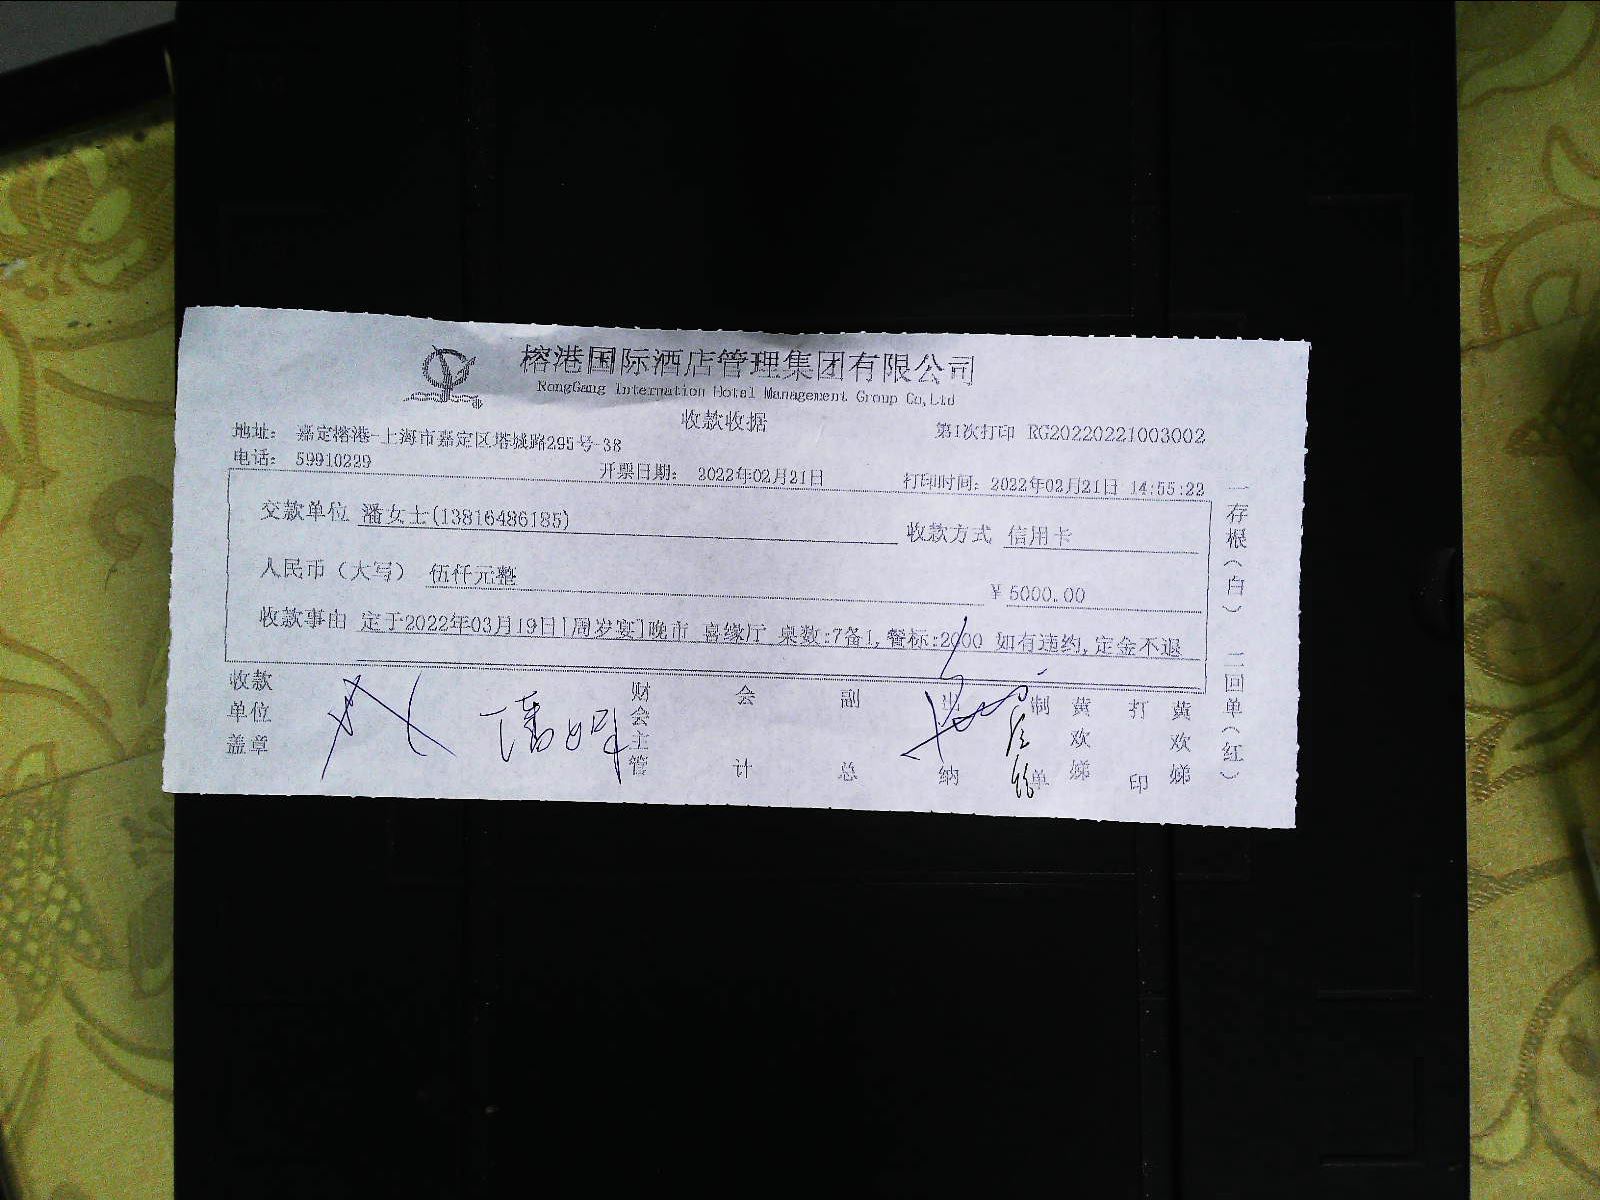 榕港国际酒店管理集团有限公司
RongGang Internation Hotel Management Group Co,Ltd
收款收据
地址： 嘉定榕港-上海市嘉定区塔城路295号-38
第1次打印 RG20220221003002
电话： 59910229
开票日期： 2022年02月21日
打印时间：2022年02月21日 14:55:22
交款单位 潘女士(13816486185)
收款方式 信用卡
人民币（大写） 伍仟元整
￥5000.00
收款事由 定于2022年03月19日[周岁宴]晚市 喜缘厅 桌数:7备1,餐标:2000 如有违约,定金不退
收款单位盖章
财会主管
会计
副总
出纳
制单
黄欢娣
打印
黄欢娣
一存根（白） 二回单（红）